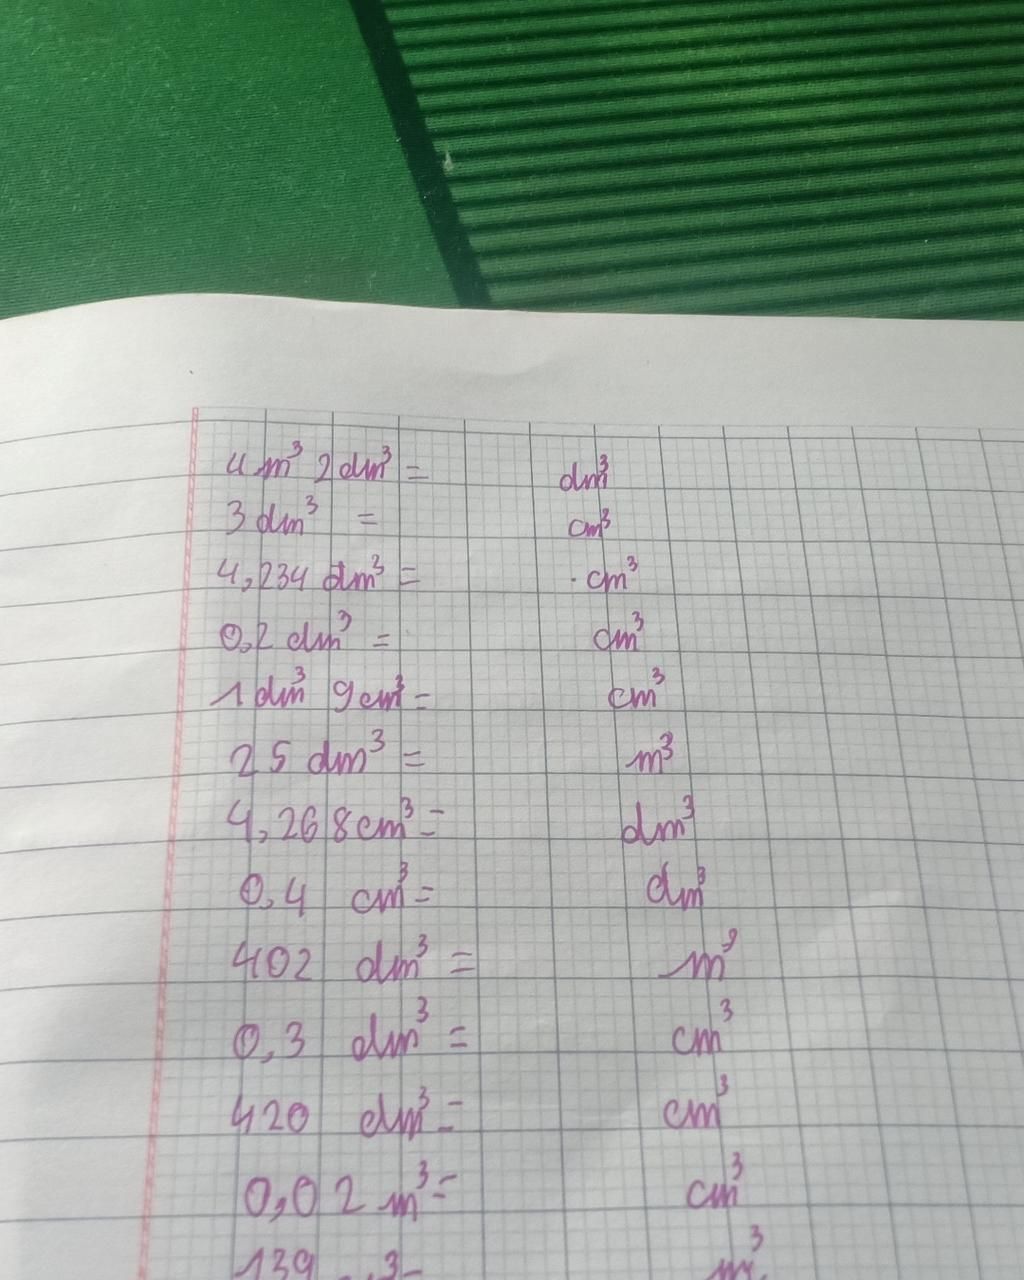 4 m³ 2 dm³ = dm³
3 dm³ = cm³
4,234 dm³ = cm³
0,2 dm³ = cm³
1 dm³ 9 cm³ = cm³
25 dm³ = m³
4,268 cm³ = dm³
0,4 cm³ = dm³
402 dm³ = m³
0,3 dm³ = cm³
420 dm³ = cm³
0,02 m³ = cm³
139 m³